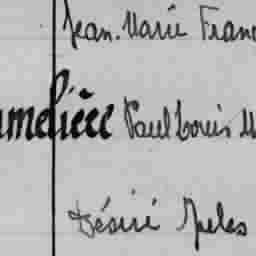 Jean-Marie Franc
melière Paul Louis M
Désiré Jules